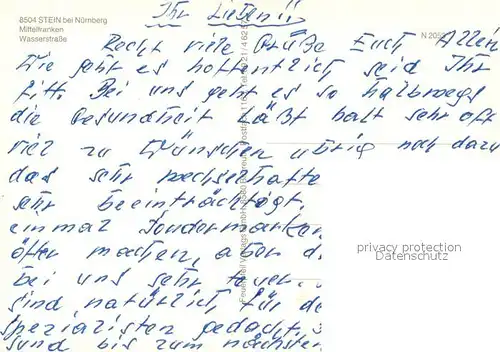 8504 STEIN bei Nürnberg
Mittelfranken
Wasserstraße
N 2052
Ihr Lieben!!
Recht viele Grüße Euch Allen
Wie geht es hoffentlich seid Ihr
fitt. Bei uns geht es so halbwegs
die Gesundheit läßt halt sehr oft
viel zu Wünschen übrig noch dazu
das sehr wechselhafte
sehr beeinträchtigt.
einmal Sondermarken
öfter machen, aber d.
bei uns sehr teuer.
sind natürlich für de
spezialisten gedacht.
sund bis zum nächsten
privacy protection